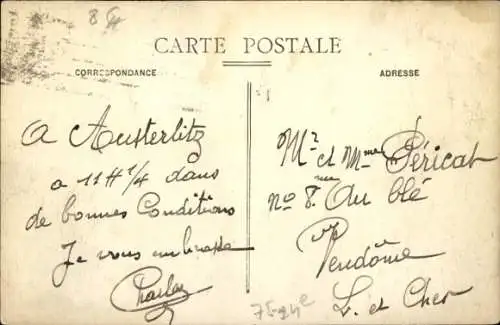 8
CARTE POSTALE
CORRESPONDANCE
ADRESSE
a Austerlitz
a 11H 1/4 dans
de bonnes Conditions
Je vous embrasse
Charles
Mr et Mme Péricat
No 8. rue Du blé
Vendôme
L. et Cher
75-24e